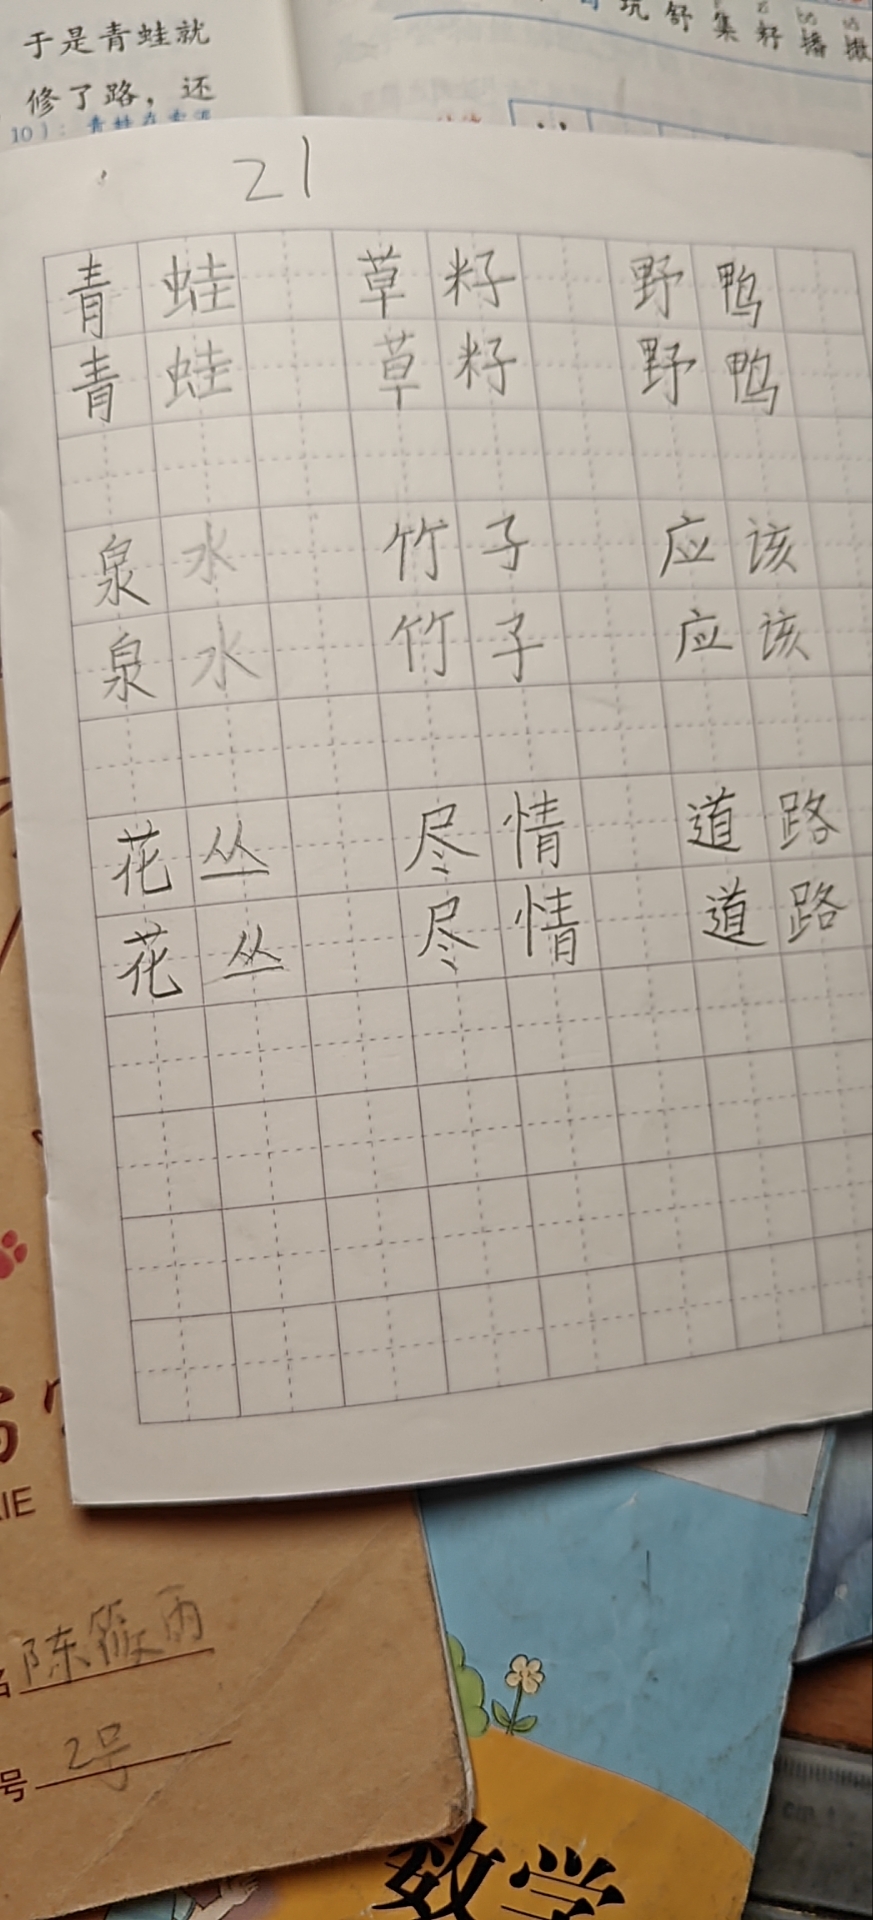 于是青蛙就
修了路，还
坑 舒 集 籽 播 撒
21
青蛙 草籽 野鸭
青蛙 草籽 野鸭
泉水 竹子 应该
泉水 竹子 应该
花丛 尽情 道路
花丛 尽情 道路
IE
陈筱雨
号 2号
数学